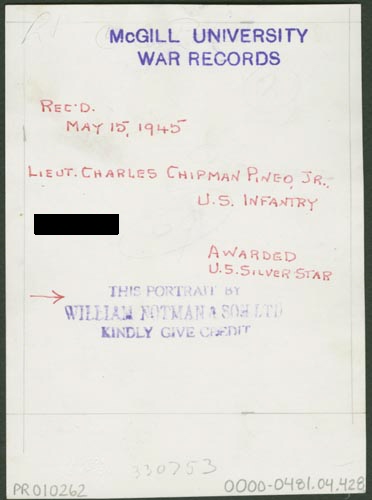 McGILL UNIVERSITY
WAR RECORDS
REC'D.
MAY 15, 1945
LIEUT. CHARLES CHIPMAN PINEO, JR.,
U.S. INFANTRY
AWARDED
U.S. SILVER STAR
THIS PORTRAIT BY
WILLIAM NOTMAN & SON LTD
KINDLY GIVE CREDIT
330753
PR010262
0000-0481.04.428